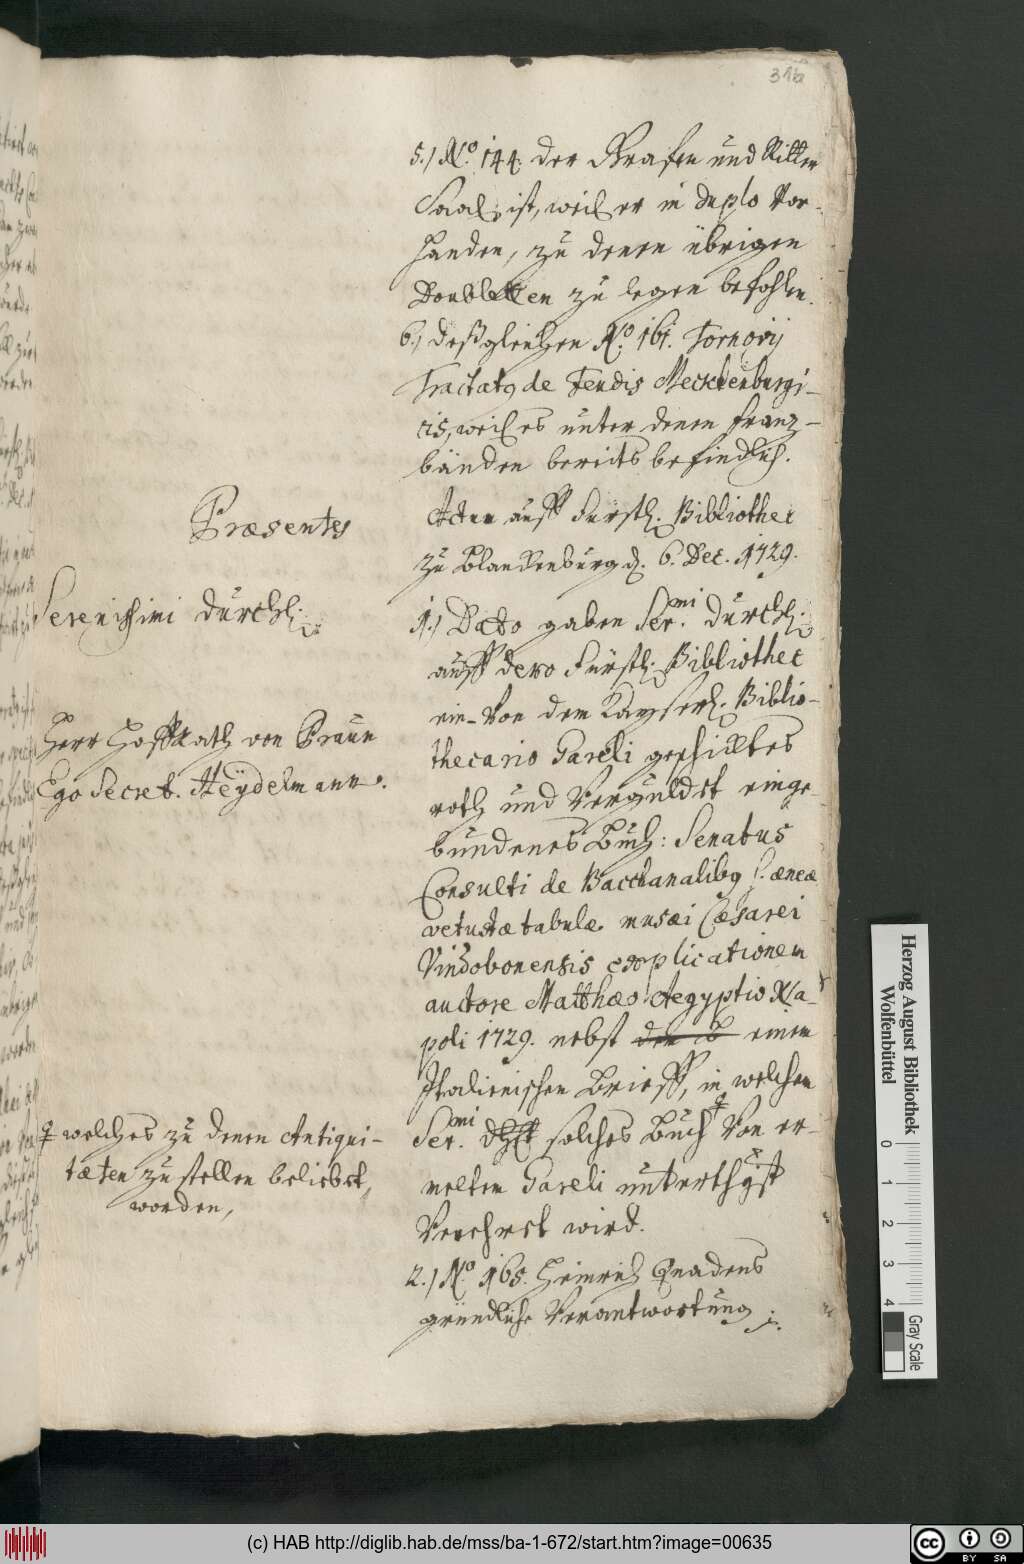 316
5.) No. 144. der Grafen und Ritter
Saal, ist, weil er in duplo vor-
handen, zu denen übrigen
Doubletten zu legen befohlen.
6.) deßgleichen No. 161. Tornovij
Tractatq de Feudis Mecklenburgi-
cis, weil es unter denen frantz-
bänden bereits befindlich.
Præsentes
Serenissimi Durchl.
Herr Hoffrath von Praun
Ego Secret. Heÿdelmann.
Actum auff Fürstl. Bibliothec
zu Blanckenburg d. 6. Dec. 1729.
1.) Dato gaben Ser.mi Durchl.
auff dero Fürstl. Bibliothec
ein von dem Kayserl. Biblio-
thecario Gareli geschicktes
roth und verguldet einge-
bundenes Buch: Senatus
Consulti de Bacchanalibq s. æneæ
vetustæ tabulæ musæi Cæsarei
Vindobonensis explicationem
auctore Matthæo Aegyptio Na-
poli 1729. nebst einem
Italienischen Brieff, in welchem
Ser.mi solches Buch ‡ von er-
melten Gareli unterthgst
verehrt wird.
‡ welches zu denen Antiqui-
tæten zu stellen beliebet
worden,
2.) No. 165. Heinrich Quadens
gründliche Verantwortung p.
Herzog August Bibliothek
Wolfenbüttel
0 1 2 3 4
Gray Scale
(c) HAB http://diglib.hab.de/mss/ba-1-672/start.htm?image=00635
cc BY SA